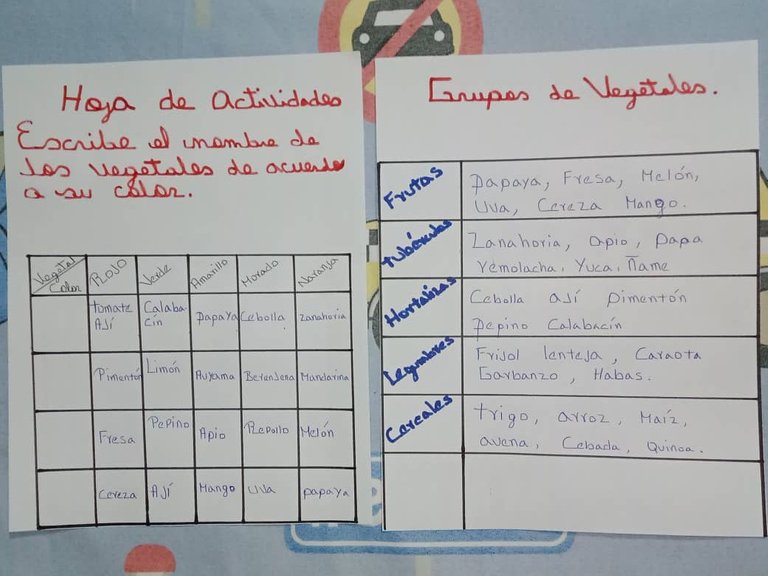 Hoja de Actividades
Escribe el nombre de
los vegetales de acuerdo
a su color.
Vegetal Color Rojo Verde Amarillo Morado Naranja
Tomate Ají Calabacín Papaya Cebolla Zanahoria
Pimentón Limón Auyama Berenjena Mandarina
Fresa Pepino Apio Repollo Melón
Cereza Ají Mango Uva papaya
Grupos de Vegetales.
Frutas
Papaya, Fresa, Melón,
Uva, Cereza Mango.
Tubérculos
Zanahoria, apio, papa
remolacha, Yuca, Ñame
Hortalizas
Cebolla ají Pimentón
Pepino Calabacín
Legumbres
Frijol lenteja, Caraota
Garbanzo, Habas.
Cereales
trigo, arroz, Maíz,
avena, Cebada, Quinoa.